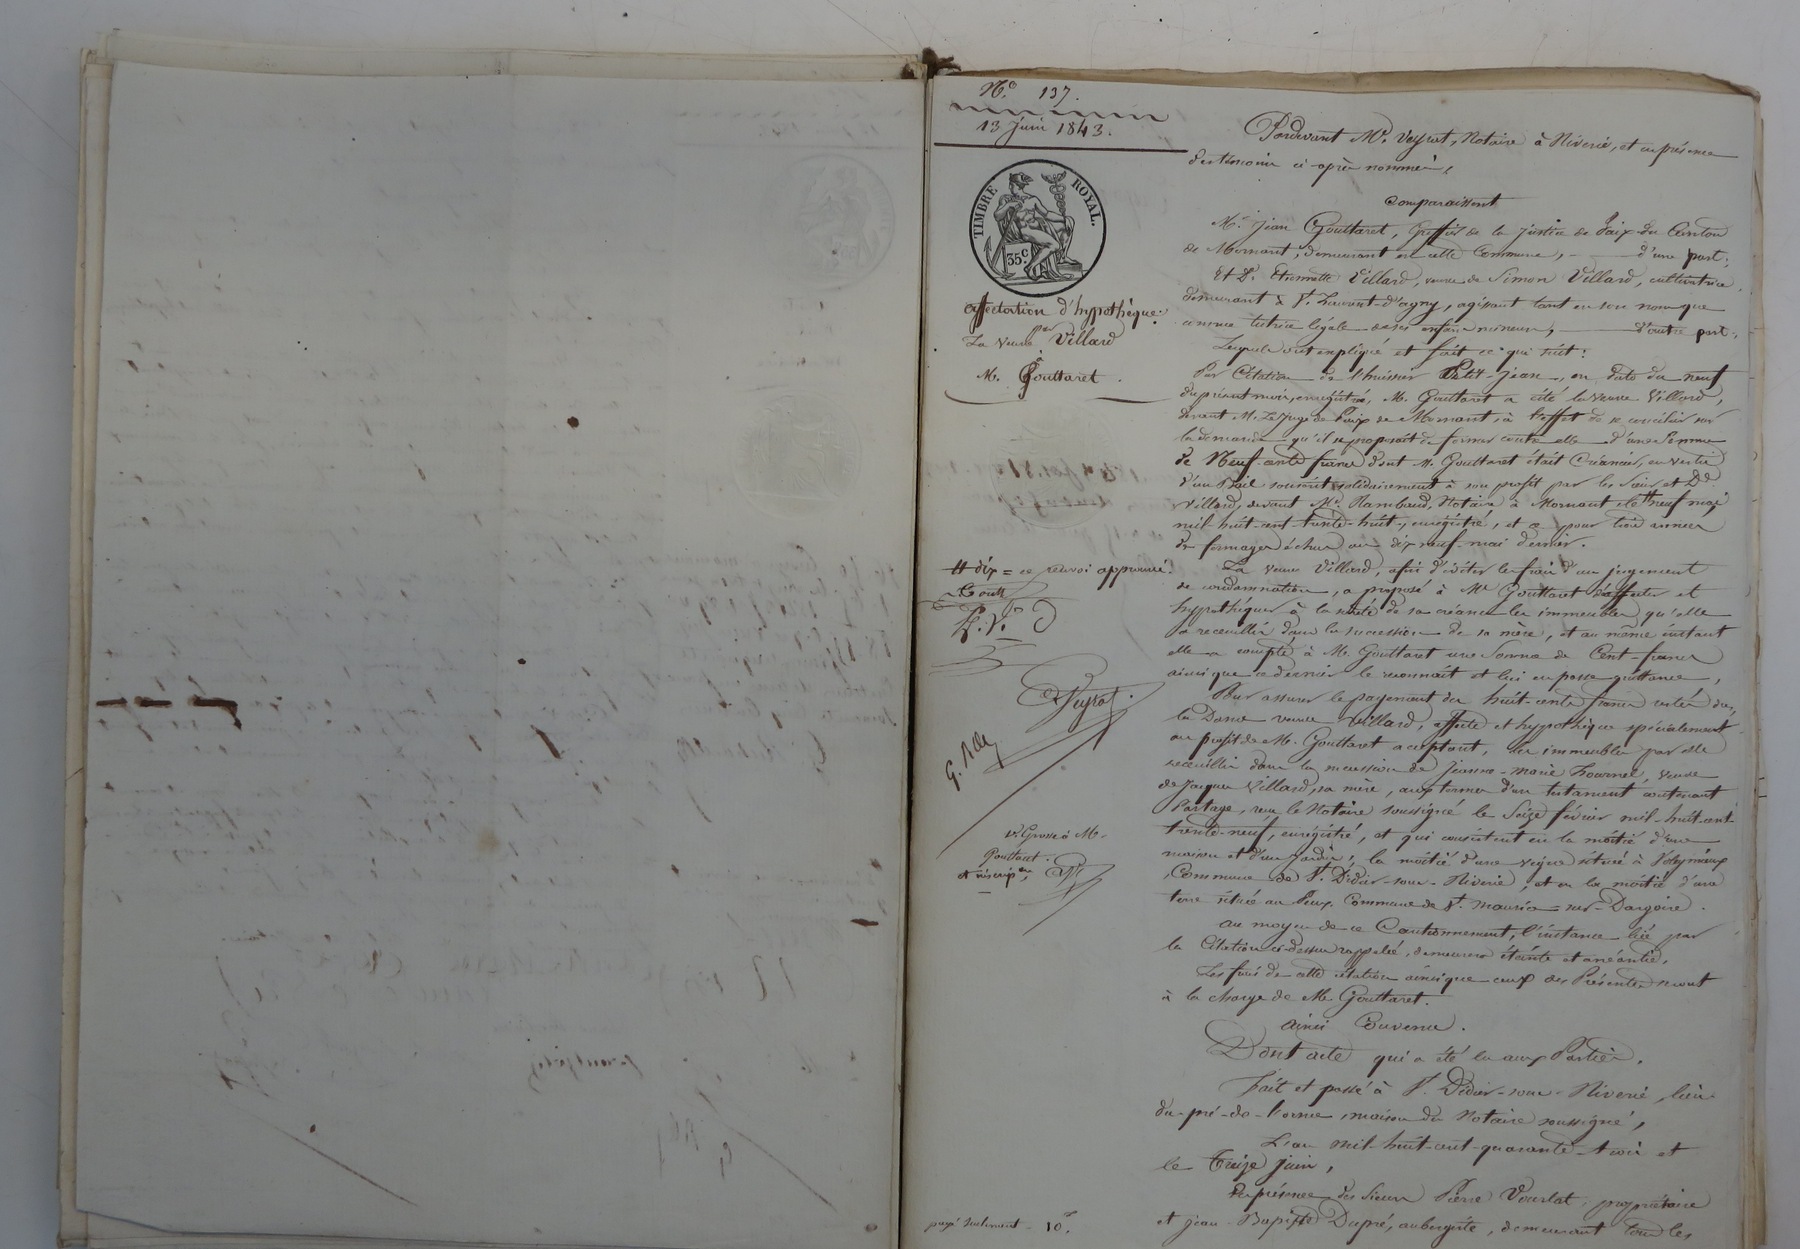 N.o 137.
13 Juin 1843.
TIMBRE ROYAL.
35 c.
Affectation d'hypothèque:
par
La veuve Villard
à
M. Gouttaret.
Pardevant Me. Veyrat, Notaire à Riverie, et en présence
des témoins ci-après nommés,
Comparaissent
Mr. Jean Gouttaret, Greffier de la Justice de Paix du Canton
de Mornant, demeurant en cette Commune, d'une part;
Et De. Etiennette Villard, veuve de Simon Villard, cultivatrice,
demeurant à St. Laurent-d'agny, agissant tant en son nom que
comme tutrice légale de ses enfans mineurs, d'autre part;
Lesquels ont expliqué et fait ce qui suit:
Par Citation de l'huissier Petit-Jean, en date du neuf
du présent mois, enregistrée, M. Gouttaret a cité la veuve Villard,
devant M. Le Juge de Paix de Mornant, à l'effet de se concilier sur
la demande qu'il se proposait de former contre elle d'une Somme
de Neuf-cents francs dont M. Gouttaret était Créancier, en vertu
d'un Bail souscrit solidairement à son profit par les Sieur et De.
Villard, devant Me. Rambaud, Notaire à Mornant le # neuf mai
mil-huit-cent-trente-huit, enregistré, et ce pour trois années
de fermages échus au dix neuf mai dernier.
# dix = ce renvoi approuvé.
Goutt
E. V.
Veyrat
G. 
La veuve Villard, afin d'éviter les frais d'un jugement
de condamnation, a proposé à Mr Gouttaret d'affecter et
hypothéquer à la sûreté de sa créance les immeubles qu'elle
a recueillis dans la succession de sa mère, et au même instant
elle a compté à M. Gouttaret une Somme de Cent-francs
ainsi que ce dernier le reconnait et lui en passe quittance,
Pour assurer le payement des huit-cents francs restés dus,
la Dame veuve Villard, affecte et hypothèque spécialement
au profit de M. Gouttaret acceptant, les immeubles par elle
recueillis dans la succession de Jeanne-Marie Fournel, veuve
de Jacques Villard, sa mère, aux termes d'un testament contenant
Partage, reçu le Notaire soussigné le Seize février mil-huit-cent-
trente-neuf, enregistré, et qui consistent en la moitié d'une
maison et d'un jardin; la moitié d'une vigne située à
Commune de St. Didier-sous-Riverie, et en la moitié d'une
terre située au Commune de St. Maurice-sur-Dargoire.
1re Grosse à M.
Gouttaret.
et inscripon,
Au moyen de ce Cautionnement, l'instance liée par
la Citation ci-dessus rappelée, demeurera éteinte et anéantie,
Les frais de cette citation ainsi que ceux des Présentes seront
à la charge de M. Gouttaret.
Ainsi Convenu.
Dont acte qui a été lu aux Parties.
Fait et passé à St. Didier-sous-Riverie, lieu
du-pré-de-l'orme, maison du Notaire soussigné,
L'an mil-huit-cent-quarante-trois et
le Treize juin,
En présence des Sieurs Pierre Vourlat, propriétaire
et Jean-Baptiste Dupré, aubergiste, demeurant tous les
payé seulement - 10f.